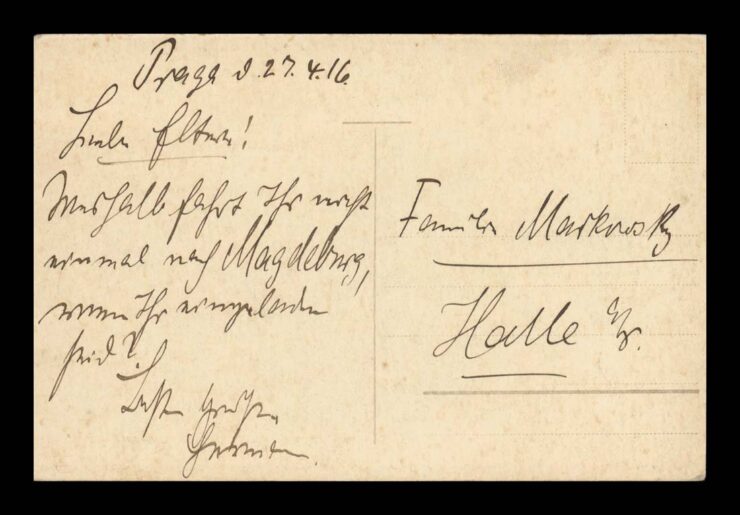 Praga d. 27.4.16.
Liebe Eltern!
Weshalb fahrt Ihr nicht
einmal nach Magdeburg,
wenn Ihr eingeladen
seid?
Beste Grüße
Hermann.
Familie Markowsky
Halle a/S.